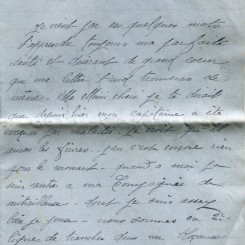 je vient par ces quelques mots
t'apprendre toujours ma parfaite
santé et désirant de grand coeur
que ma lettre vous trouveras de
même. Ma
que depuis hier mon capitaine a été
évacué par maladie. je crois
avais les fièvres. peu c'est encore rien
pour le moment. quand a moi je
suis rentrer a ma Compagnies de
mitrailleur dont je suis assez
nous sommes en 2e
lignes de tranchée dans un